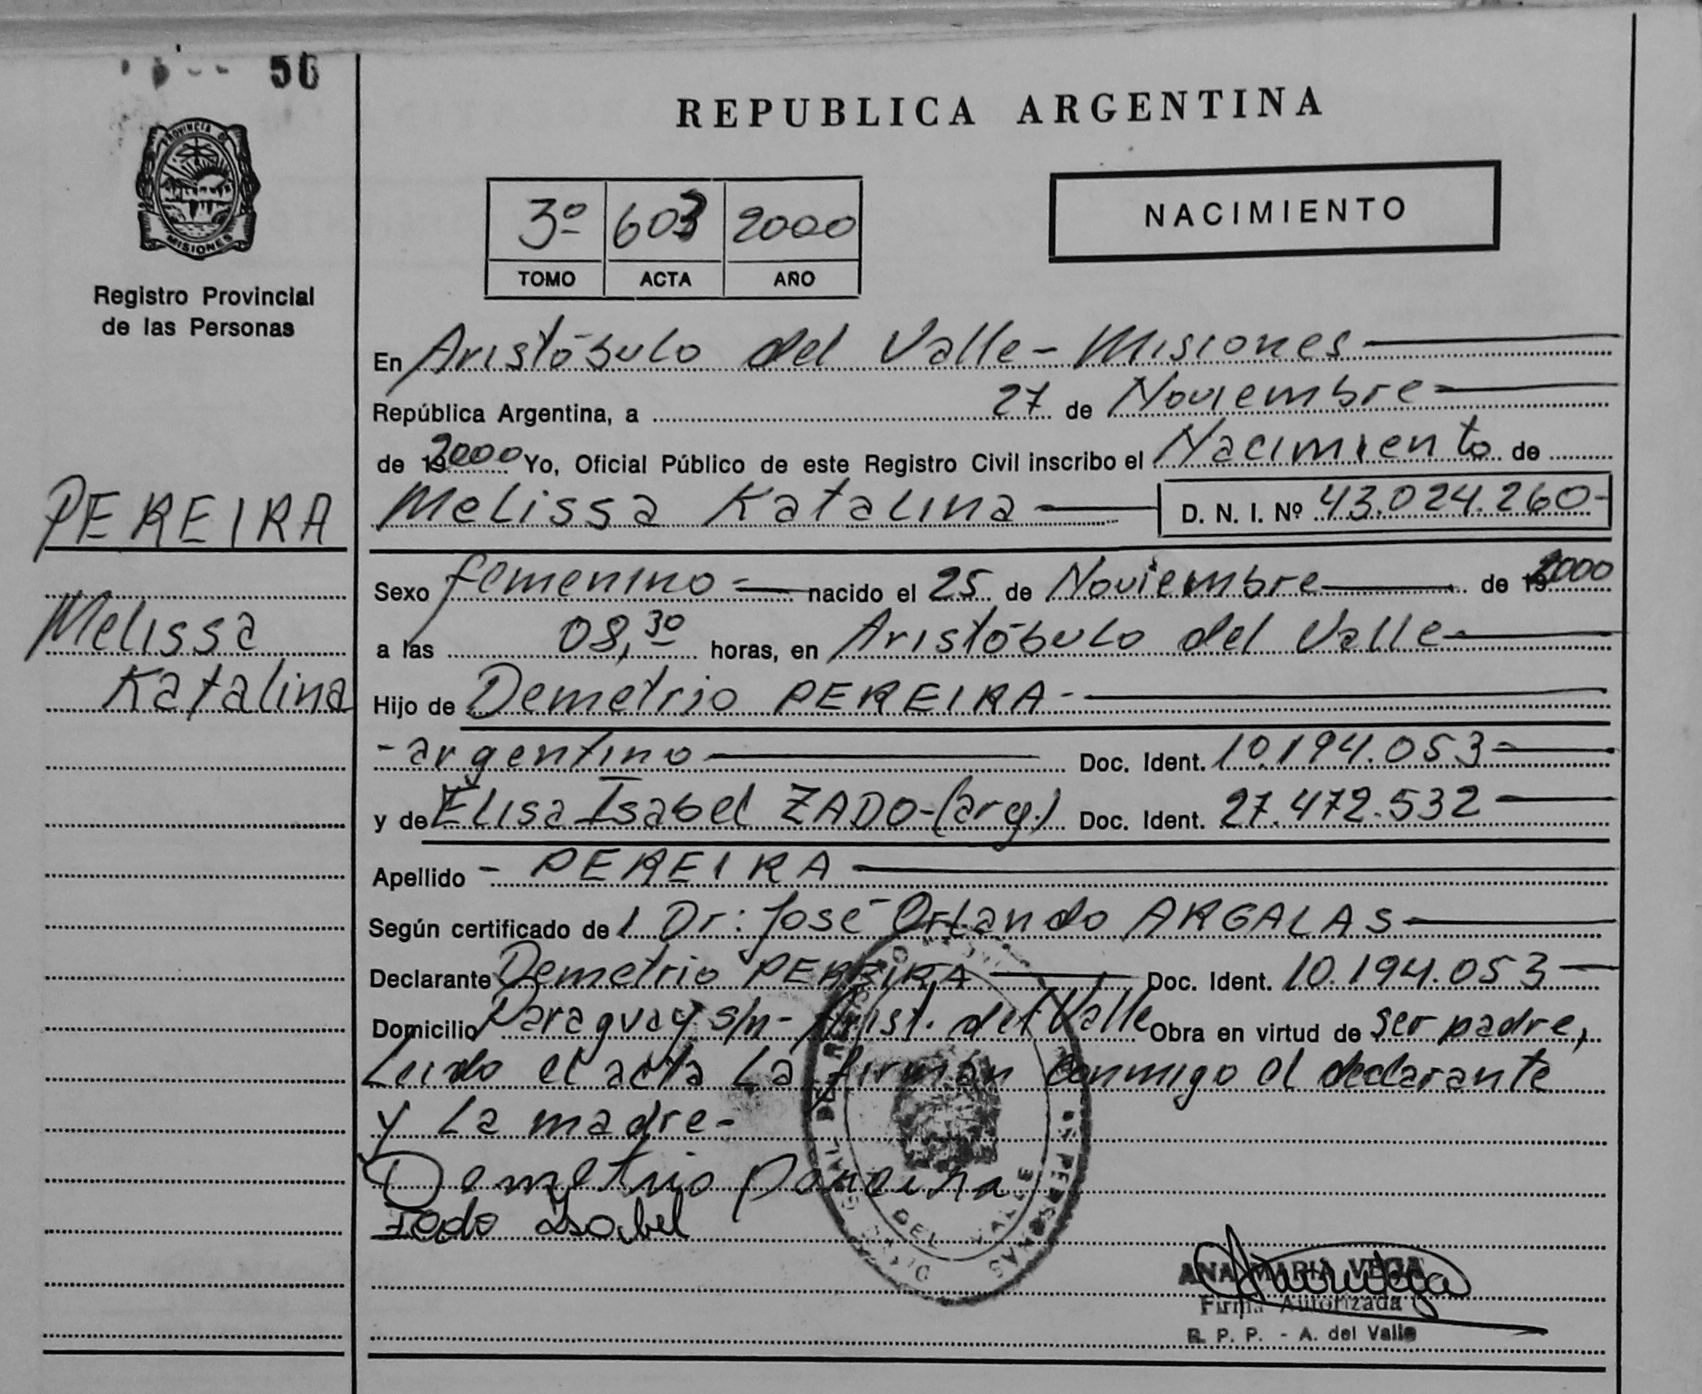 56
PROVINCIA DE
MISIONES
Registro Provincial
de las Personas
PEREIRA
Melissa
Katalina
REPUBLICA ARGENTINA
3º 603 2000
TOMO ACTA AÑO
NACIMIENTO
En Aristóbulo del Valle - Misiones
República Argentina, a 27 de Noviembre
de 2000 Yo, Oficial Público de este Registro Civil inscribo el Nacimiento de
Melissa Katalina D. N. I. Nº 43.024.260-
Sexo femenino = nacido el 25 de Noviembre de 2000
a las 08,30 horas, en Aristóbulo del Valle
Hijo de Demetrio PEREIRA -
- argentino Doc. Ident. 10.194.053
y de Elisa Isabel ZADO-(arg.) Doc. Ident. 27.472.532
Apellido - PEREIRA
Según certificado de l Dr: José Orlando ARGALAS
Declarante Demetrio PEREIRA Doc. Ident. 10.194.053
Domicilio Paraguay s/n - Arist. del Valle Obra en virtud de ser padre,
Leido el acta La firman conmigo el declarante
y La madre-
Demetrio Pereira
Zado Isabel
DEL VALLE
ANA MARIA VEGA
Firma Autorizada
R. P. P. - A. del Valle